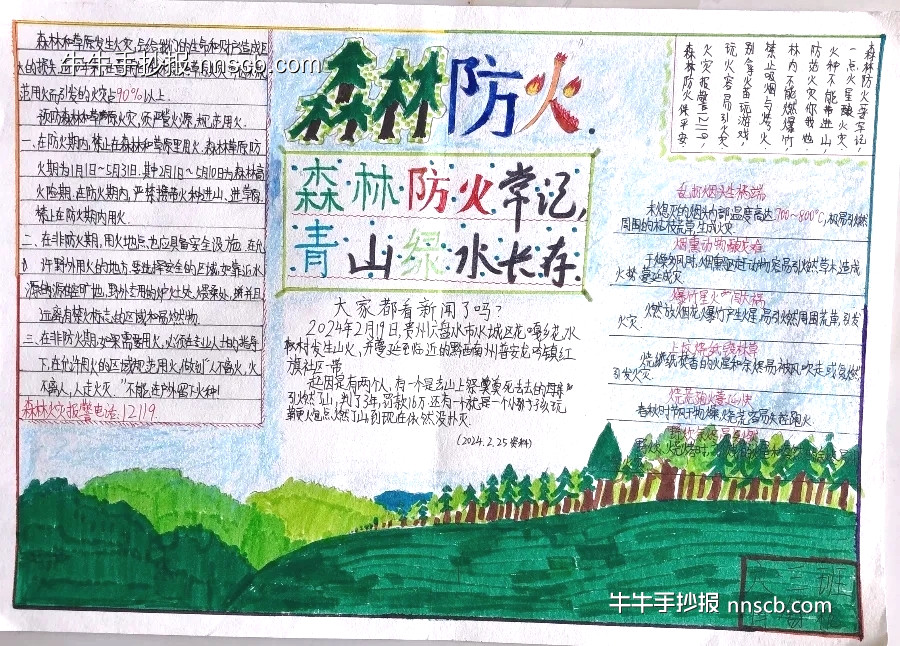 森林防火
森林防火常记，
青山绿水长存
森林和草原发生火灾，会给我们的生命和财产造成巨
范用火而引发的火灾占90%以上。
预防森林和草原火灾，须严管火源，规范用火。
一、在防火期内，禁止在森林和草原里用火。森林草原防
火期为1月1日~5月31日。其中2月1日~5月10日为森林高
火险期。在防火期内，严禁携带火种进山、进草原，
禁止在防火期内用火。
二、在非防火期，用火地点也应具备安全设施。在允
许野外用火的地方，要选择安全的区域，如靠近水
源的
远离有禁火标志的区域和易燃物。
三、在非防火期，如果需要用火，必须在主山人士的指导
下，在允许用火的区域规范用火，做到“人不离火，火
不离人，人走火灭。”不能在户外留下火种！
森林火灾报警电话：12119.
大家都看新闻了吗？
2024年2月19日，贵州六盘水市水城区花嘎乡花水
村发生山火，并蔓延至临近的黔西南州普安龙吟镇红
旗社区一带
起因是有两个人，有一个是去山上祭奠死去的母亲
引燃了山，判了3年，罚款16万，还有一个就是一个小孩子玩
火炮点燃了山，到现在依然没扑灭.
(2024.2.25资料)
森林防火要牢记，
一点火星酿火灾，
火种不能带进山，
防范火灾你我也，
林内不能燃爆竹，
禁止吸烟与烤火，
别拿火苗玩游戏，
玩火容易引火灾，
火灾报警12119，
森林防火保平安。
乱扔烟头生祸端
未熄灭的烟头内部温度高达700~800℃，极易引燃
周围的枯枝荒草，生成火灾.
烟熏动物破坏着
干燥的风时，烟熏驱赶动物容易引燃草木，造成
火势蔓延成灾.
爆竹星火酿灾祸
燃放烟花爆竹产生星，易引燃周围荒草，引发
火灾.
上坟烧
烧纸焚香的火星和余烬易被风吹走或复燃，
引发火灾.
春秋时节风干物燥，烧荒容易失控跑火.
牛牛手抄报 nnscb.com
牛牛手抄报 nnscb.com